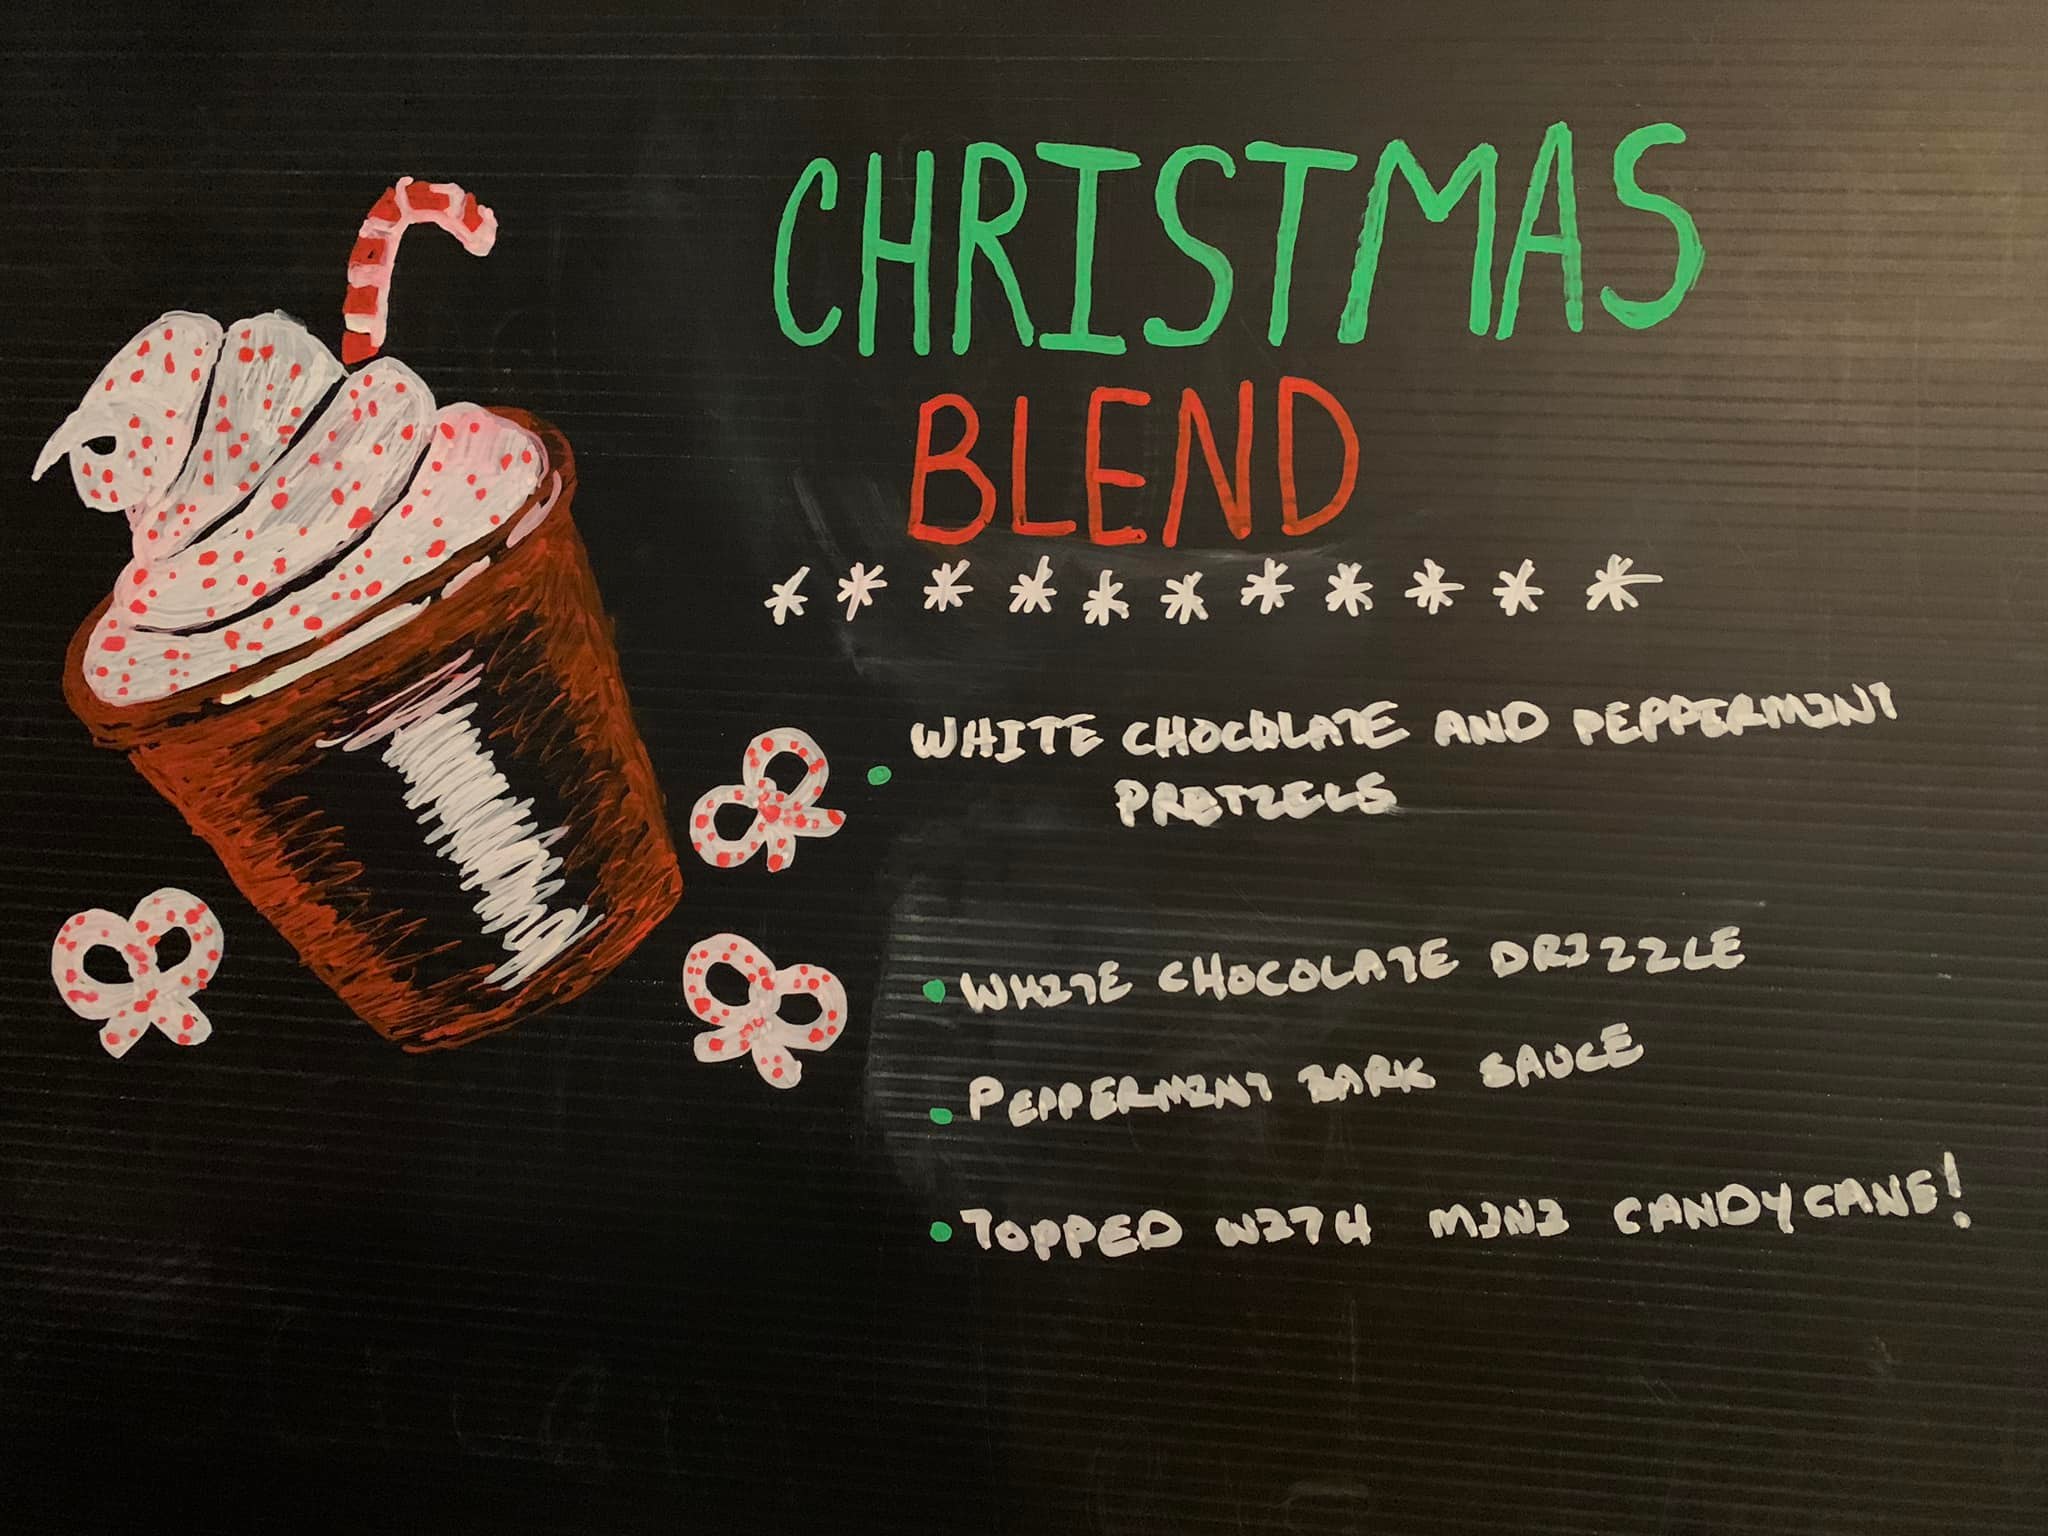 CHRISTMAS
BLEND
***********
• WHITE CHOCOLATE AND PEPPERMINT
PRETZELS
• WHITE CHOCOLATE DRIZZLE
• PEPPERMINT BARK SAUCE
• TOPPED WITH MINI CANDYCANE!